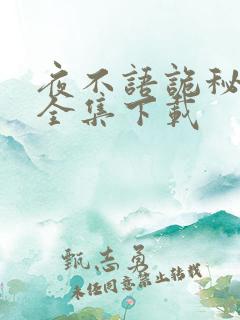 夜不語詭秘
全集下載
甄志勇
未经同意禁止转载